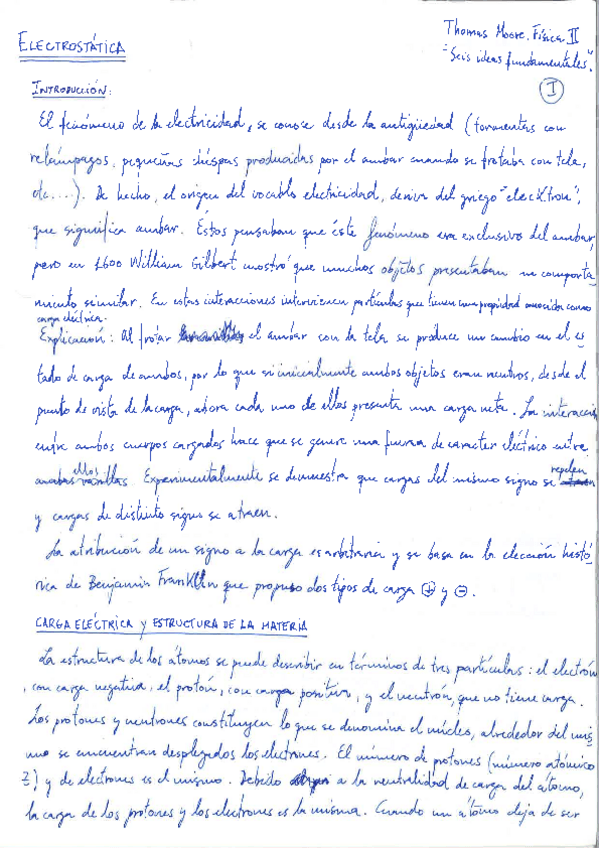 Thomas Moore. Física II
"Seis ideas fundamentales".
ELECTROSTÁTICA
I
INTRODUCCIÓN:
El fenómeno de la electricidad, se conoce desde la antigüedad (tormentas con
relámpagos, pequeñas chispas producidas por el ambar cuando se frotaba con tela,
etc....). De hecho, el origen del vocablo electricidad, deriva del griego "elecktron",
que significa ambar. Éstos pensaban que éste fenómeno era exclusivo del ambar,
pero en 1600 William Gilbert mostró que muchos objetos presentaban un comporta
miento similar. En estas interacciones intervienen partículas que tienen una propiedad conocida como
carga eléctrica.
Explicación: Al frotar el ambar con la tela se produce un cambio en el es
tado de carga de ambos, por lo que si inicialmente ambos objetos eran neutros, desde el
punto de vista de la carga, ahora cada uno de ellos presenta una carga neta. La interacción
entre ambos cuerpos cargados hace que se genere una fuerza de caracter eléctrico entre
ellos. Experimentalmente se demuestra que cargas del mismo signo se repelen
y cargas de distinto signo se atraen.
La atribución de un signo a la carga es arbitraria y se basa en la elección histó
rica de Benjamin Franklin que propuso dos tipos de carga ⊕ y ⊖.
CARGA ELÉCTRICA Y ESTRUCTURA DE LA MATERIA
La estructura de los átomos se puede describir en términos de tres partículas: el electrón
, con carga negativa, el protón, con carga positiva, y el neutrón, que no tiene carga.
Los protones y neutrones constituyen lo que se denomina el núcleo, alrededor del mis
mo se encuentran desplegados los electrones. El número de protones (número atómico
Z) y de electrones es el mismo. Debido a la neutralidad de carga del átomo,
la carga de los protones y los electrones es la misma. Cuando un átomo deja de ser